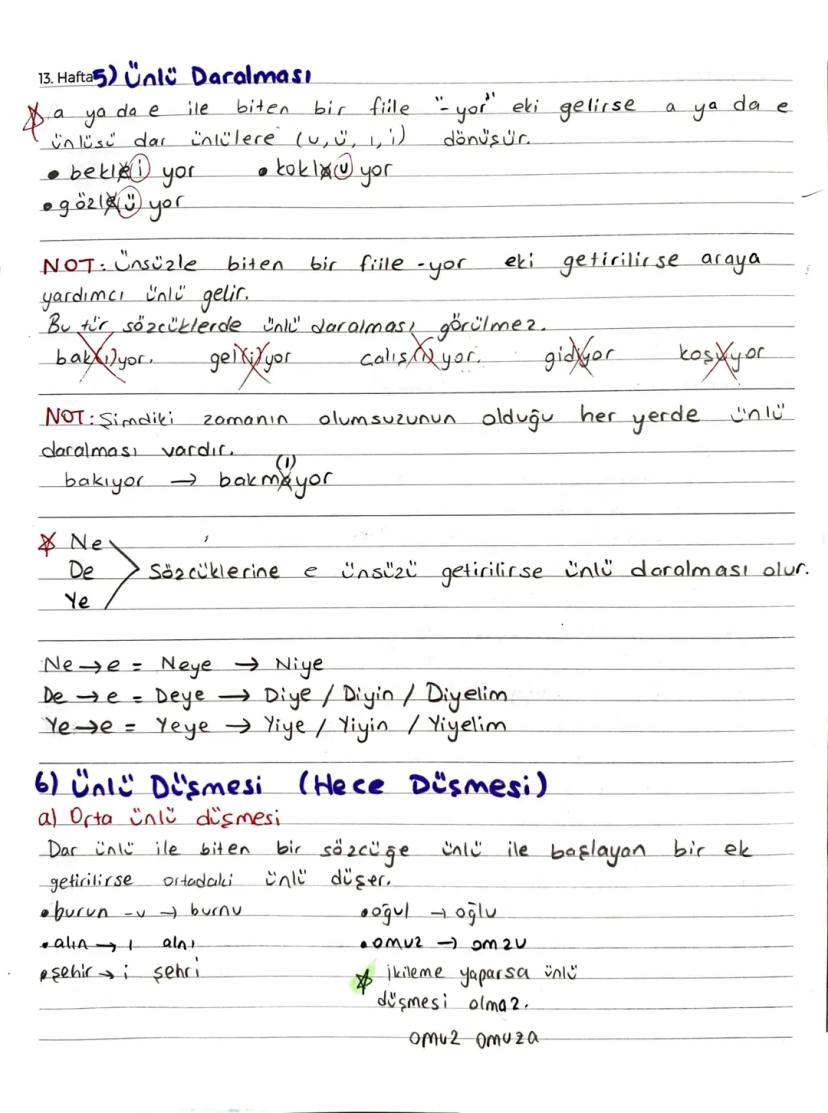 13. Hafta 5) Ünlü Daralması
a ya da e ile biten bir fiile "-yor" eki gelirse a ya da e
ünlüsü dar ünlülere (u, ü, ı, i) dönüşür.
• bekle(i)yor • kokla(u)yor
• gözle(ü)yor
NOT: Ünsüzle biten bir fiile -yor eki getirilirse araya
yardımcı ünlü gelir.
Bu tür sözcüklerde ünlü daralması görülmez.
bak(ı)yor. gel(i)yor çalış(ı)yor. gidiyor koşuyor
NOT: Şimdiki zamanın olumsuzunun olduğu her yerde ünlü
daralması vardır.
(ı)
bakıyor → bakmayor
Ne
De Sözcüklerine e ünsüzü getirilirse ünlü daralması olur.
Ye
Ne → e = Neye → Niye
De → e = Deye → Diye / Diyin / Diyelim
Ye → e = Yeye → Yiye / Yiyin / Yiyelim
6) Ünlü Düşmesi (Hece Düşmesi)
a) Orta ünlü düşmesi
Dar ünlü ile biten bir sözcüğe ünlü ile başlayan bir ek
getirilirse ortadaki ünlü düşer.
• burun -u → burnu • oğul → oğlu
• alın → ı alnı • omuz → omzu
• şehir → i şehri İkileme yaparsa ünlü
düşmesi olmaz.
omuz omuza